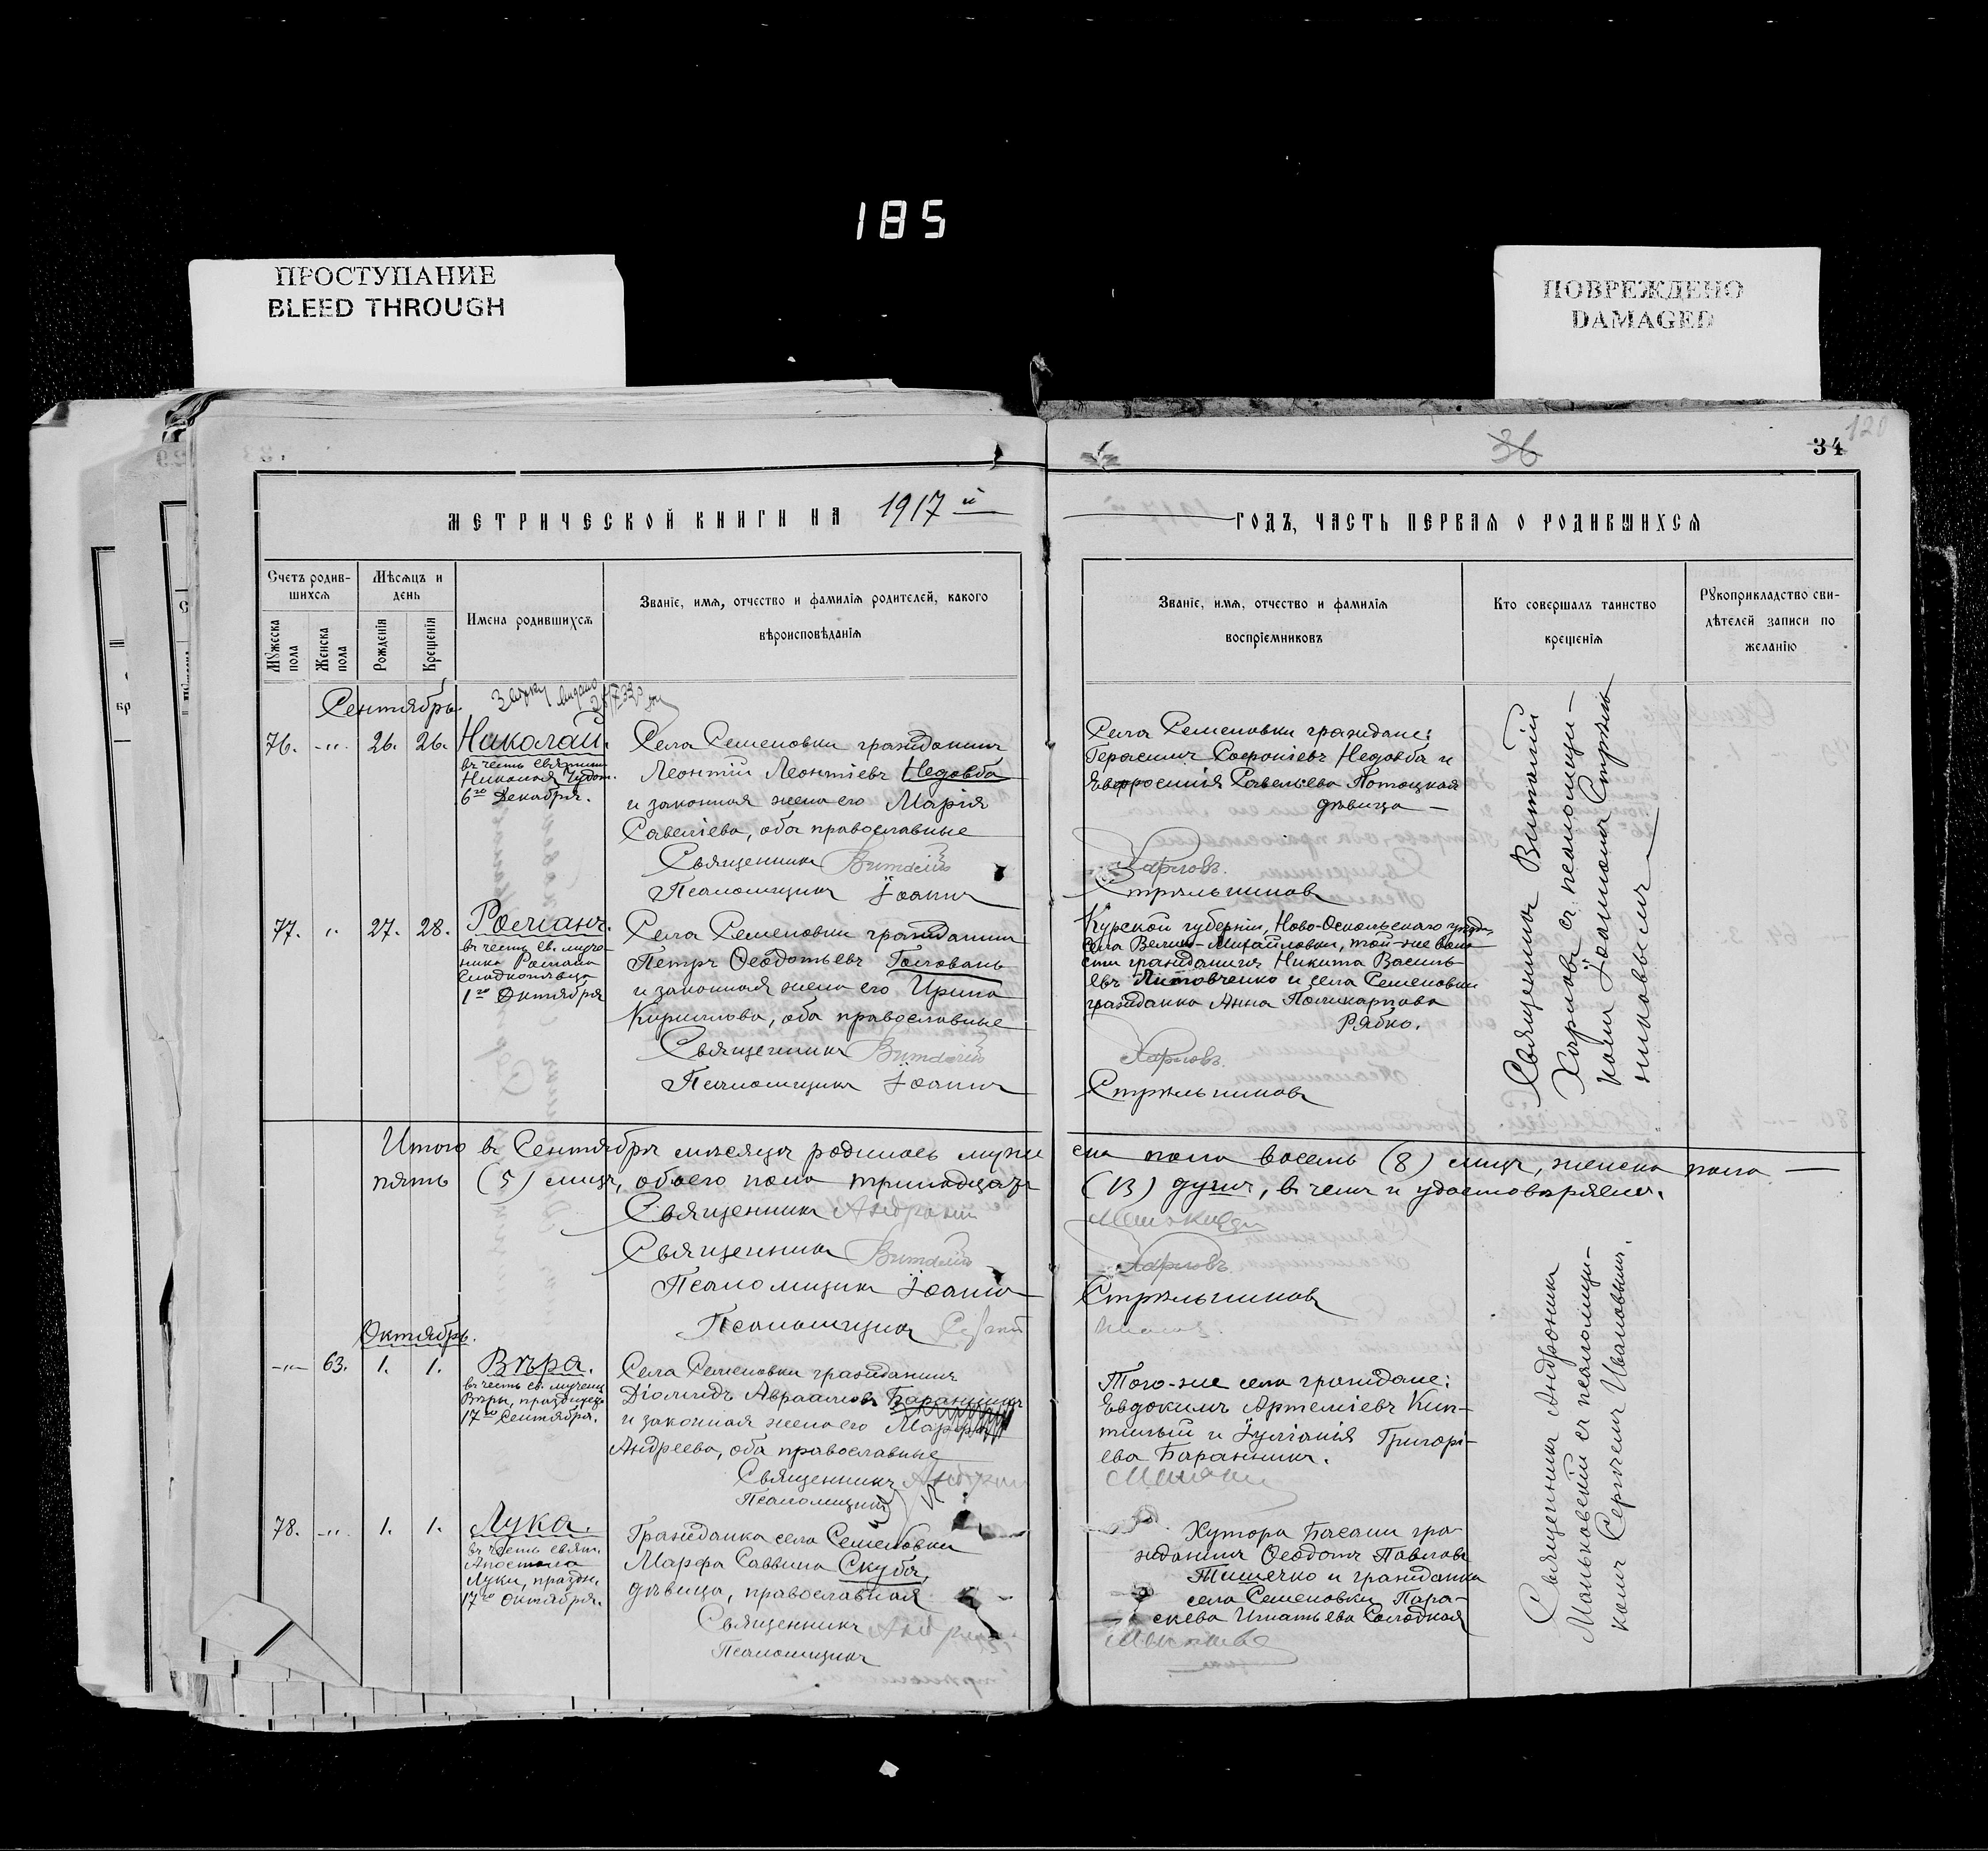 185
ПРОСТУПАНИЕ
BLEED THROUGH
ПОВРЕЖДЕНО
DAMAGED
120
36
34
МЕТРИЧЕСКОЙ КНИГИ НА 1917й
ГОДЪ, ЧАСТЬ ПЕРВАЯ О РОДИВШИХСЯ
Счетъ родив-
шихся
Мужеска
пола
Женска
пола
Мѣсяцъ и
день
Рожденія
Крещенія
Имена родившихся
Званіе, имя, отчество и фамилія родителей, какого
вѣроисповѣданія
Званіе, имя, отчество и фамилія
воспріемниковъ
Кто совершалъ таинство
крещенія
Рукоприкладство сви-
дѣтелей записи по
желанію
Сентябрь.
76. -"- 26. 26. Николай.
въ честь святит.
Николая Чудот.
6го Декабря.
Села Семеновки гражданинъ
Леонтій Леонтіевъ Недовба
и законная жена его Марія
Савеліева, оба православные
Священникъ Виталій
Псаломщикъ Іоаннъ
Села Семеновки граждане:
Герасимъ Софоніевъ Недовба и
Евфросинія Савельева Потоцкая
дѣвица —
Харловъ.
Стрѣльниковъ
Священникъ Виталій
Харловъ съ псаломщи-
комъ Іоанномъ Стрѣль-
никовымъ
77. " 27. 28. Романъ.
въ честь св. муче-
ника Романа
Сладкопѣвца
1го Октября
Села Семеновки гражданинъ
Петръ Ѳеодотьевъ Головань
и законная жена его Ирина
Кириллова, оба православные
Священникъ Виталій
Псаломщикъ Іоаннъ
Курской губерніи, Ново-Оскольскаго уѣзда,
села Велико-Михайловки, той-же воло-
сти гражданинъ Никита Василь-
евъ Литовченко и села Семеновки
гражданка Анна Поликарпова
Рябко.
Харловъ.
Стрѣльниковъ
Итого въ Сентябрѣ мѣсяцѣ родилось муже
ска пола восемь (8) лицъ, женска пола —
пять (5) лицъ, обоего пола тринадцать
(13) душъ, въ чемъ и удостовѣряемъ.
Священникъ Андроникъ
Священникъ Виталій
Харловъ.
Псаломщикъ Іоаннъ
Стрѣльниковъ
Псаломщикъ Сергій
Октябрь.
-"- 63. 1. 1. Вѣра.
въ честь св. мучениц.
Вѣры, празднуемой
17го Сентября.
Села Семеновки гражданинъ
Діомидъ Авраамовъ Баранникъ
и законная жена его Марфа
Андреева, оба православные
Священникъ Андроникъ
Псаломщикъ
Того-же села граждане:
Евдокимъ Артеміевъ Кип-
тилый и Іуліанія Григорі-
ева Баранникъ.
Священникъ Андроникъ
Маньковскій съ псаломщи-
комъ Сергіемъ Ивановымъ.
78. -"- 1. 1. Лука.
въ честь свят.
Апостола
Луки, праздн.
17го Октября.
Гражданка села Семеновки
Марфа Саввина Скуба,
дѣвица, православная
Священникъ
Псаломщикъ
Хутора Басани гра-
жданинъ Ѳеодотъ Павловъ
Тимечко и гражданка
села Семеновки Пара-
скева Игнатьева Солодкая